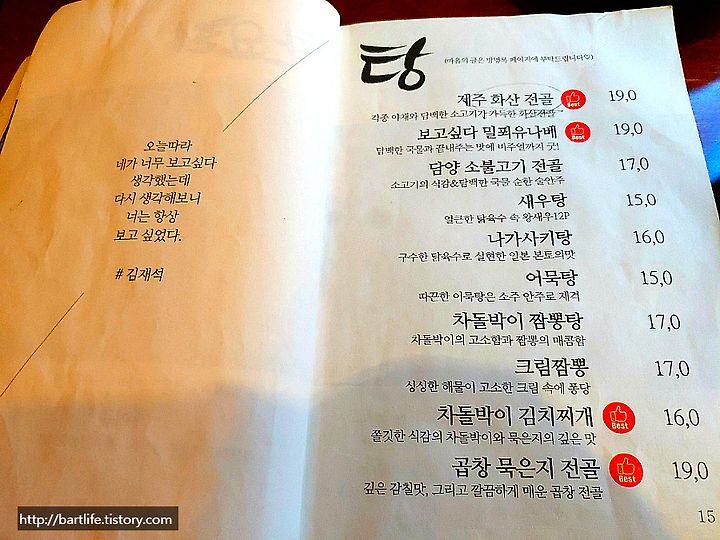 오늘따라
네가 너무 보고싶다
생각했는데
다시 생각해보니
너는 항상
보고 싶었다.
# 김재석
탕 (마음의 글은 방명록 페이지에 부탁드립니다♡)
제주 화산 전골 Best 19,0
각종 야채와 담백한 소고기가 가득한 화산전골
보고싶다 밀푀유나베 Best 19,0
담백한 국물과 끝내주는 맛에 비주얼까지 굿!
담양 소불고기 전골 17,0
소고기의 식감&담백한 국물 순한 술안주
새우탕 15,0
얼큰한 닭육수 속 왕새우12P
나가사키탕 16,0
구수한 닭육수로 실현한 일본 본토의맛
어묵탕 15,0
따끈한 어묵탕은 소주 안주로 제격
차돌박이 짬뽕탕 17,0
차돌박이의 고소함과 짬뽕의 매콤함
크림짬뽕 17,0
싱싱한 해물이 고소한 크림 속에 퐁당
차돌박이 김치찌개 Best 16,0
쫄깃한 식감의 차돌박이와 묵은지의 깊은 맛
곱창 묵은지 전골 Best 19,0
깊은 감칠맛, 그리고 깔끔하게 매운 곱창 전골
15
http://bartlife.tistory.com